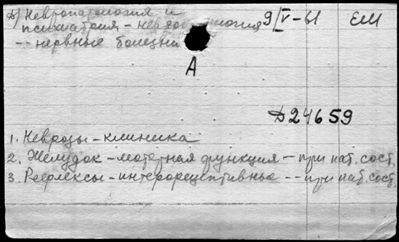 Невропатология и 9/V-61 ЕМ
психиатрия - невропатология
-- нервные болезни
А
Д24659
1. Неврозы - клиника
2. Желудок - моторная функция -- при пат. сост.
3. Рефлексы - интерорецептивные -- при пат. сост.